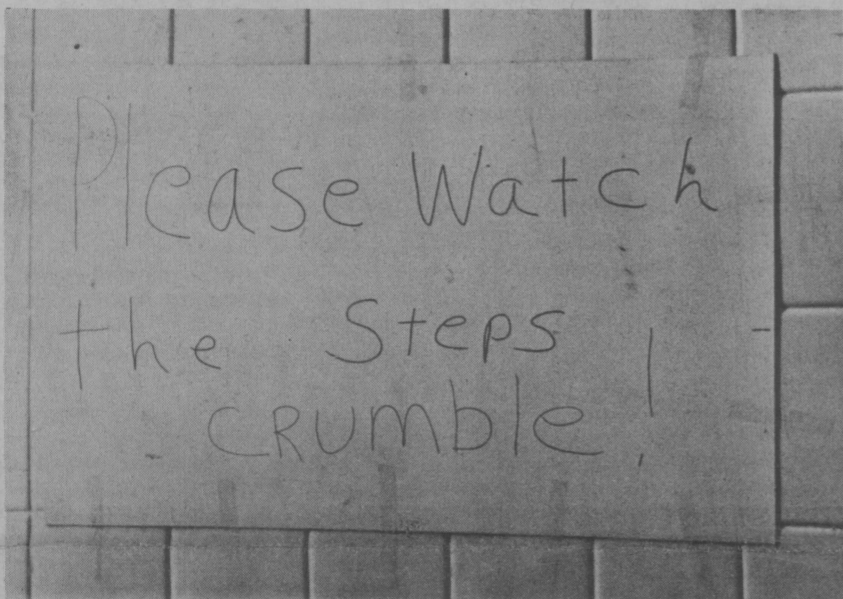 Please Watch
the Steps
CRUMble!